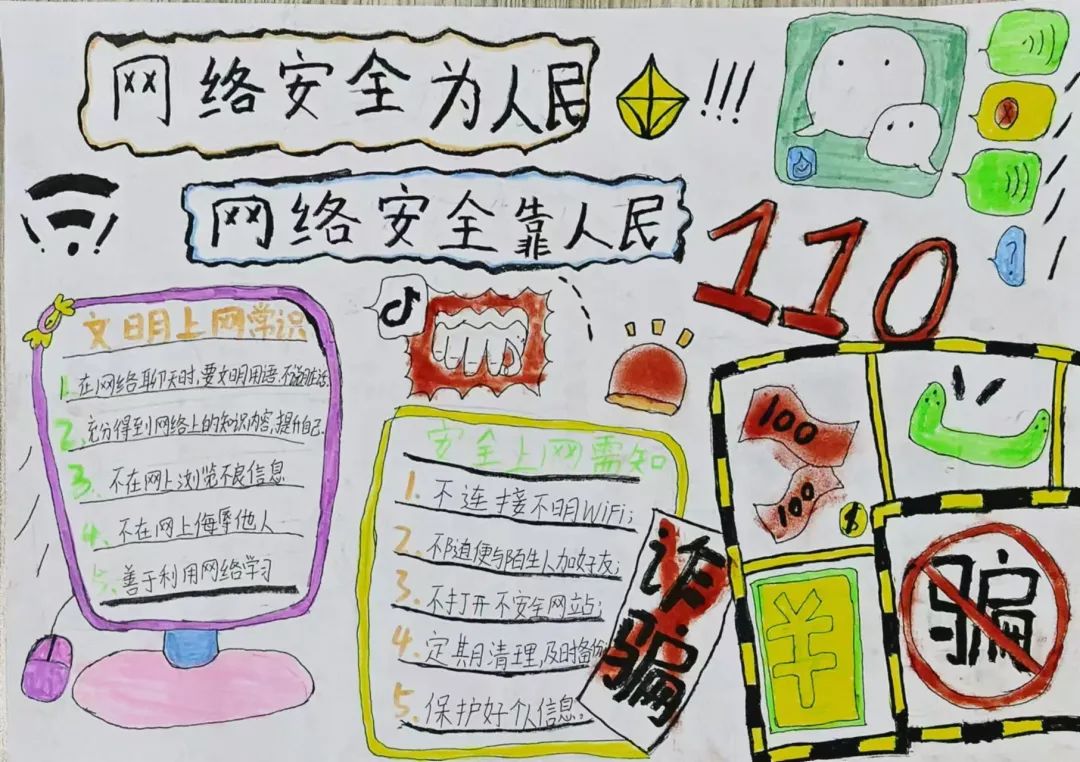 网络安全为人民
!!!
网络安全靠人民
110
文明上网学识
1.在网络聊天时,要文明用语,不说脏话;
2.充分得到网络上的知识内容,提升自己.
3.不在网上浏览不良信息
4.不在网上侮辱他人
5.善于利用网络学习
安全上网需知
1.不连接不明WiFi;
2.不随便与陌生人加好友;
3.不打开不安全网站;
4.定期清理,及时备份
5.保护好个人信息;
诈骗
100
100
¥
骗
?